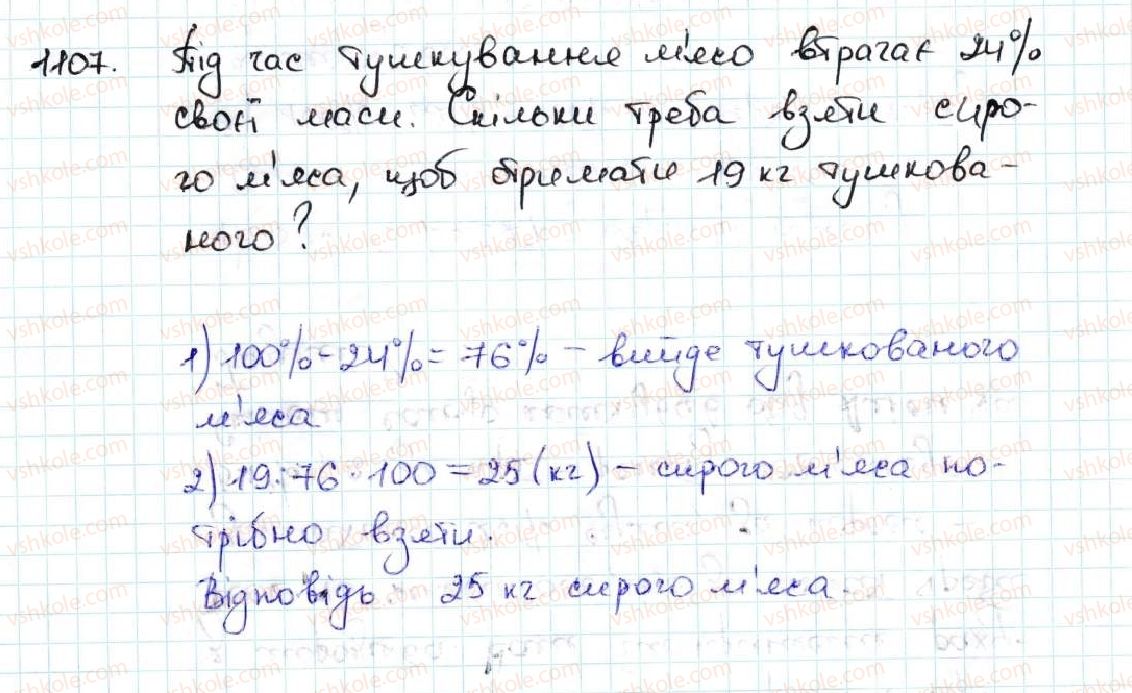 1107. Під час тушкування м'ясо втрачає 24%
своєї маси. Скільки треба взяти сиро-
го м'яса, щоб отримати 19 кг тушкова-
ного?
1) 100% - 24% = 76% - вийде тушкованого
м'яса
2) 19:76·100 = 25 (кг) - сирого м'яса по-
трібно взяти.
Відповідь 25 кг сирого м'яса.
vshkole.com